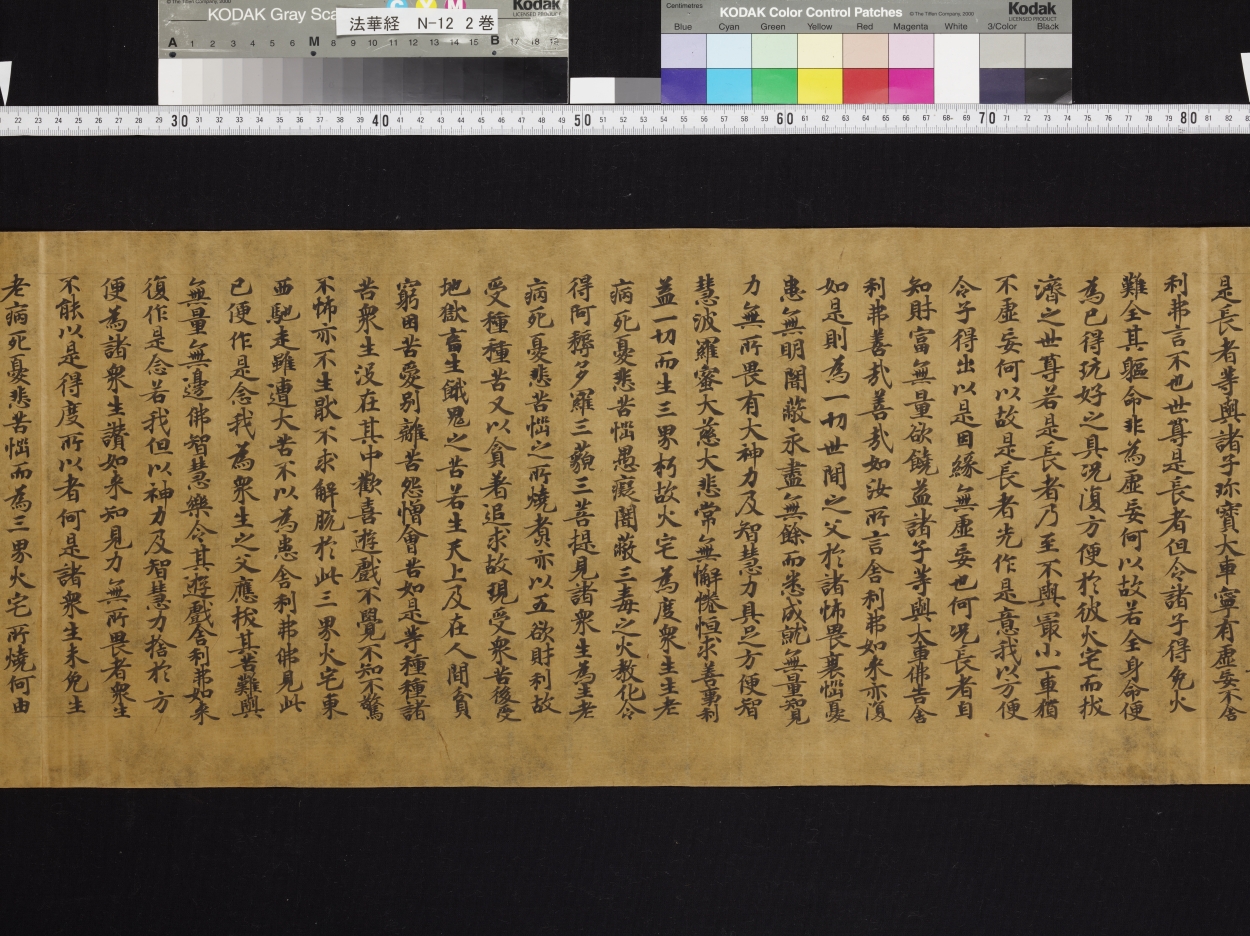 KODAK Gray Sca
© The Tiffen Company, 2000
Kodak
LICENSED PRODUCT
法華経 N-12 2巻
C Y M
A 1 2 3 4 5 6 M 8 9 10 11 12 13 14 15 B 17 18 19
Centimetres
KODAK Color Control Patches
© The Tiffen Company, 2000
Kodak
LICENSED PRODUCT
Blue Cyan Green Yellow Red Magenta White 3/Color Black
22 23 24 25 26 27 28 29 30 31 32 33 34 35 36 37 38 39 40 41 42 43 44 45 46 47 48 49 50 51 52 53 54 55 56 57 58 59 60 61 62 63 64 65 66 67 68 69 70 71 72 73 74 75 76 77 78 79 80 81 82
是長者等與諸子珎寶大車寧有虛妄不舍
利弗言不也世尊是長者但令諸子得免火
難全其軀命非為虛妄何以故若全身命便
為已得玩好之具况復方便於彼火宅而拔
濟之世尊若是長者乃至不與冣小一車猶
不虛妄何以故是長者先作是意我以方便
令子得出以是因緣無虛妄也何况長者自
知財富無量欲饒益諸子等與大車佛告舍
利弗善哉善哉如汝所言舍利弗如来亦復
如是則為一切世間之父於諸怖畏衰惱憂
患無明闇蔽永盡無餘而悉成就無量知見
力無所畏有大神力及智慧力具足方便智
慧波羅蜜大慈大悲常無懈惓恒求善事利
益一切而生三界朽故火宅為度衆生生老
病死憂悲苦惱愚癡闇蔽三毒之火教化令
得阿耨多羅三藐三菩提見諸衆生為生老
病死憂悲苦惱之所燒煑亦以五欲財利故
受種種苦又以貪著追求故現受衆苦後受
地獄畜生餓鬼之苦若生天上及在人間貧
窮困苦愛别離苦怨憎會苦如是等種種諸
苦衆生没在其中歡喜遊戲不覺不知不驚
不怖亦不生猒不求解脱於此三界火宅東
西馳走雖遭大苦不以為患舍利弗佛見此
已便作是念我為衆生之父應拔其苦難與
無量無邊佛智慧樂令其遊戲舍利弗如来
復作是念若我但以神力及智慧力捨於方
便為諸衆生讃如来知見力無所畏者衆生
不能以是得度所以者何是諸衆生未免生
老病死憂悲苦惱而為三界火宅所燒何由